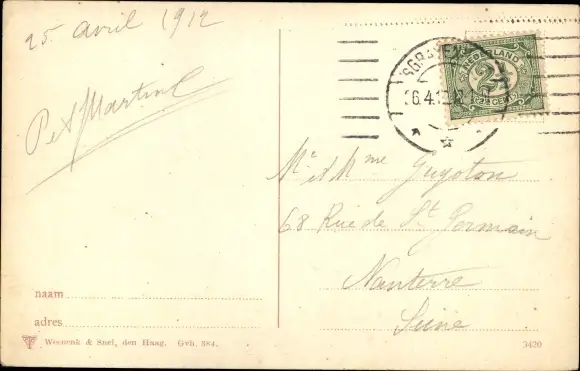 25 avril 1912
P et Martine
'SGRAVENH
26.4.12.
NEDERLAND
2½
2½ CENT
Mr et Mme Guyoton
68 Rue de St. Germain
Nanterre
Seine
naam
adres
Weenenk & Snel, den Haag. Gvh. 384.
3420